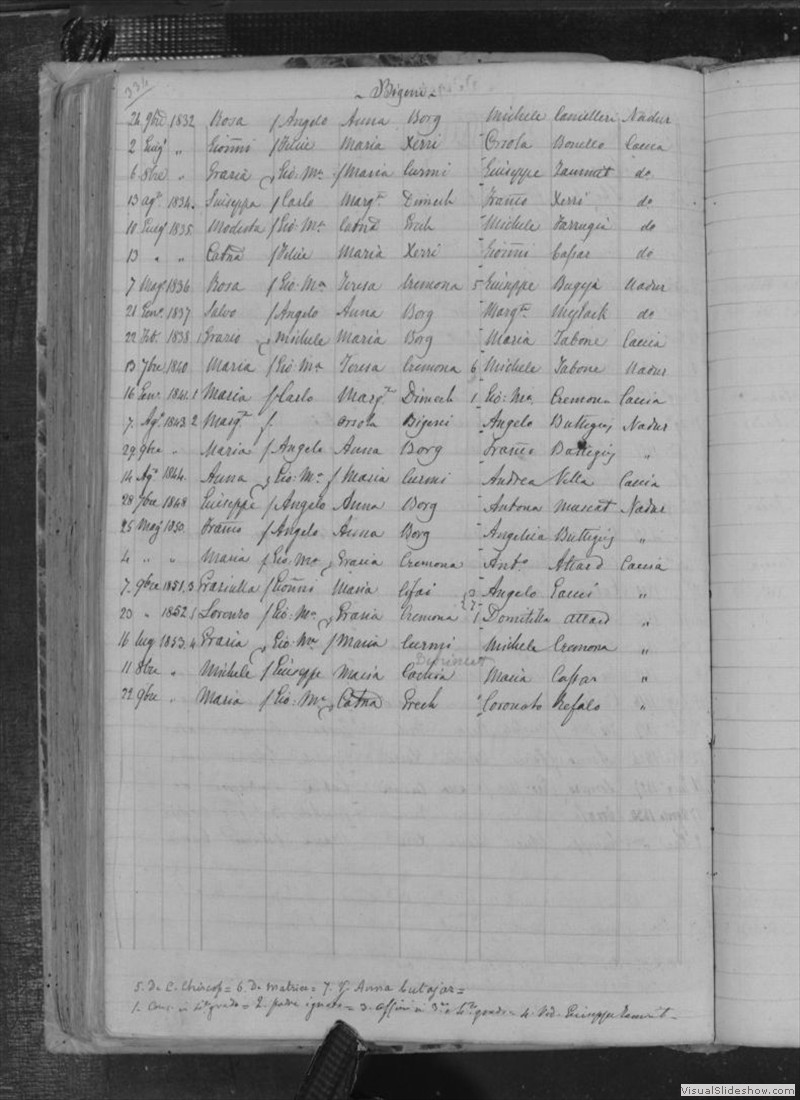 334
~ Bigeni ~
24 9bre 1832 Rosa f Angelo Anna Borg Michele Camilleri Nadur
2 Giugn " Gioñi f Felice Maria Xerri Orsola Bonello Caccia
6 8bre " Grazia Gio: Ma f Maria Curmi Giuseppe do
13 ag. 1834. Giuseppa f Carlo Marg.ta Dimech Franco Xerri do
10 Giug 1835 Modesta f Gio: Ma Catna Grech Michele Farrugia do
13 " " Catna f Felice Maria Xerri Gioñi Caſsar do
7 Mag. 1836 Rosa f Gio: Ma Teresa Cremona 5 Giuseppe Bugeja Nadur
21 Genn. 1837 Salvo f Angelo Anna Borg Marg.ta do
22 Feb. 1838 Grazio Michele Maria Borg Maria Tabone Caccia
13 7bre 1840. Maria f Gio: Ma Teresa Cremona 6 Michele Tabone Nadur
16 Genn. 1841. 1 Maria f Carlo Marg.ta Dimech 1 Gio: Ma Cremona Caccia
7. Ag. 1843. 2 Marg.ta f Orsola Bigeni Angelo Buttigieg Nadur
29 9bre " Maria f Angelo Anna Borg Franco Buttigieg "
14 Ag. 1844. Anna Gio: Ma f Maria Curmi Andrea Vella Caccia
28 7bre 1848 Giuseppe f Angelo Anna Borg Antona Muscat Nadur
25 Mag 1850. Franco f Angelo Anna Borg Angelica Buttigieg "
4 " " Maria f Gio: Ma Grazia Cremona Anto Attard Caccia
7. 9bre 1851. 3 Graziulla f Gioñi Maria 3 Angelo "
20 " 1852 Lorenzo f Gio: Ma Grazia Cremona 1 Domitilla Attard "
16 Lug 1853. 4 Grazia Gio: Ma f Maria Curmi Michele Cremona "
11 8bre " Michele f Giuseppe Maria Cachia Maria Caſsar "
22 9bre " Maria f Gio: Ma Catna Grech Coronato Refalo "
5. da C. Chircop = 6. da matrice = 7. f. Anna Cutajar =
1. Con. in 4to grado = 2. padre ignoto = 3. affini in 3o e 4to grado = 4. Ved. Giuseppe
VisualSlideshow.com